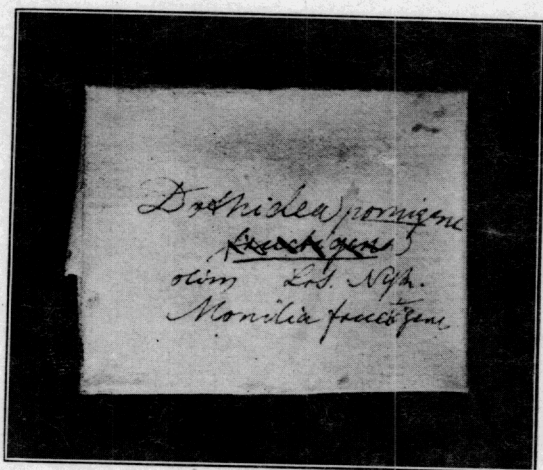 Dothidea pomigena
fructigena)
olim
Monilia fructigena